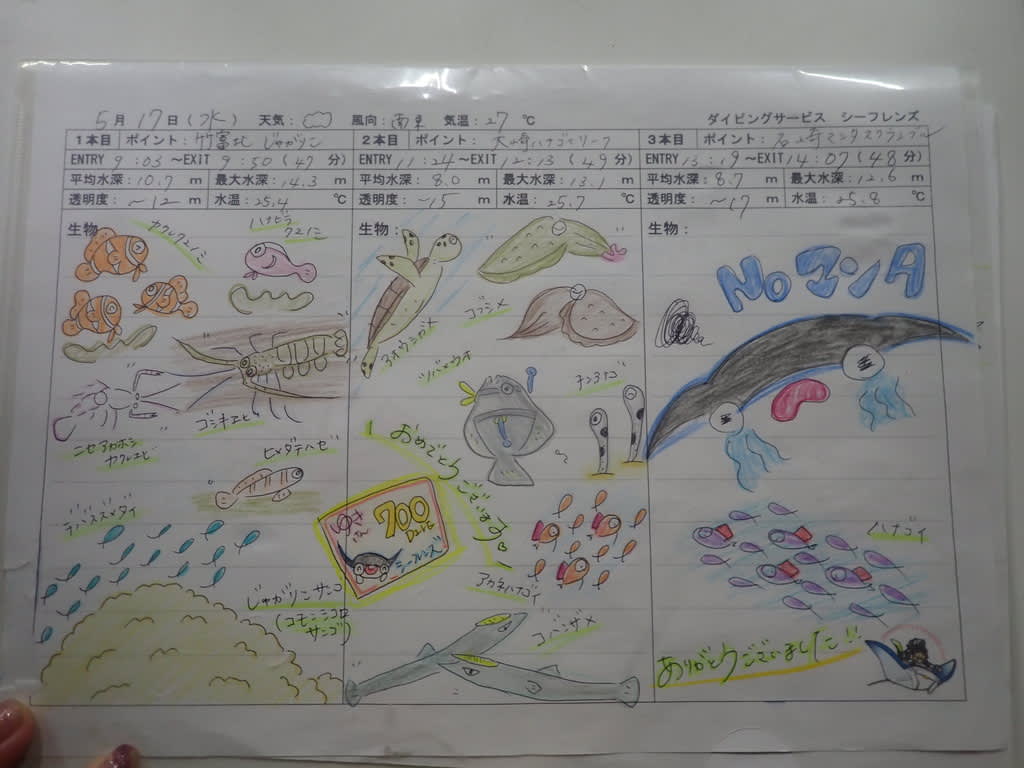 5月17日(水) 天気: 風向:南東 気温:27℃ ダイビングサービス シーフレンズ
1本目 ポイント:竹富北じゃがりこ
ENTRY 9:03 ～EXIT 9:50 (47分)
平均水深:10.7 m 最大水深:14.3 m
透明度:～12 m 水温:25.4 ℃
生物:
カクレクマノミ
ハナビラ
クマノミ
ゴシキエビ
ニセアカホシ
カクレエビ
ヒメダテハゼ
デバスズメダイ
じゃがりこサンゴ
(コモンシコロ
サンゴ)
2本目 ポイント:大崎ハナゴイリーフ
ENTRY 11:24 ～EXIT 12:13 (49分)
平均水深:8.0 m 最大水深:13.1 m
透明度:～15 m 水温:25.7 ℃
生物:
アオウミガメ
コブシメ
ツバメウオ
チンアナゴ
おめでとうございます
ゆきさん
700
Dive
シーフレンズ
アカネハナゴイ
コバンザメ
3本目 ポイント:石崎マンタスクランブル
ENTRY 13:19 ～EXIT 14:07 (48分)
平均水深:8.7 m 最大水深:12.6 m
透明度:～17 m 水温:25.8 ℃
生物:
Noマンタ
ハナゴイ
ありがとうございました!!